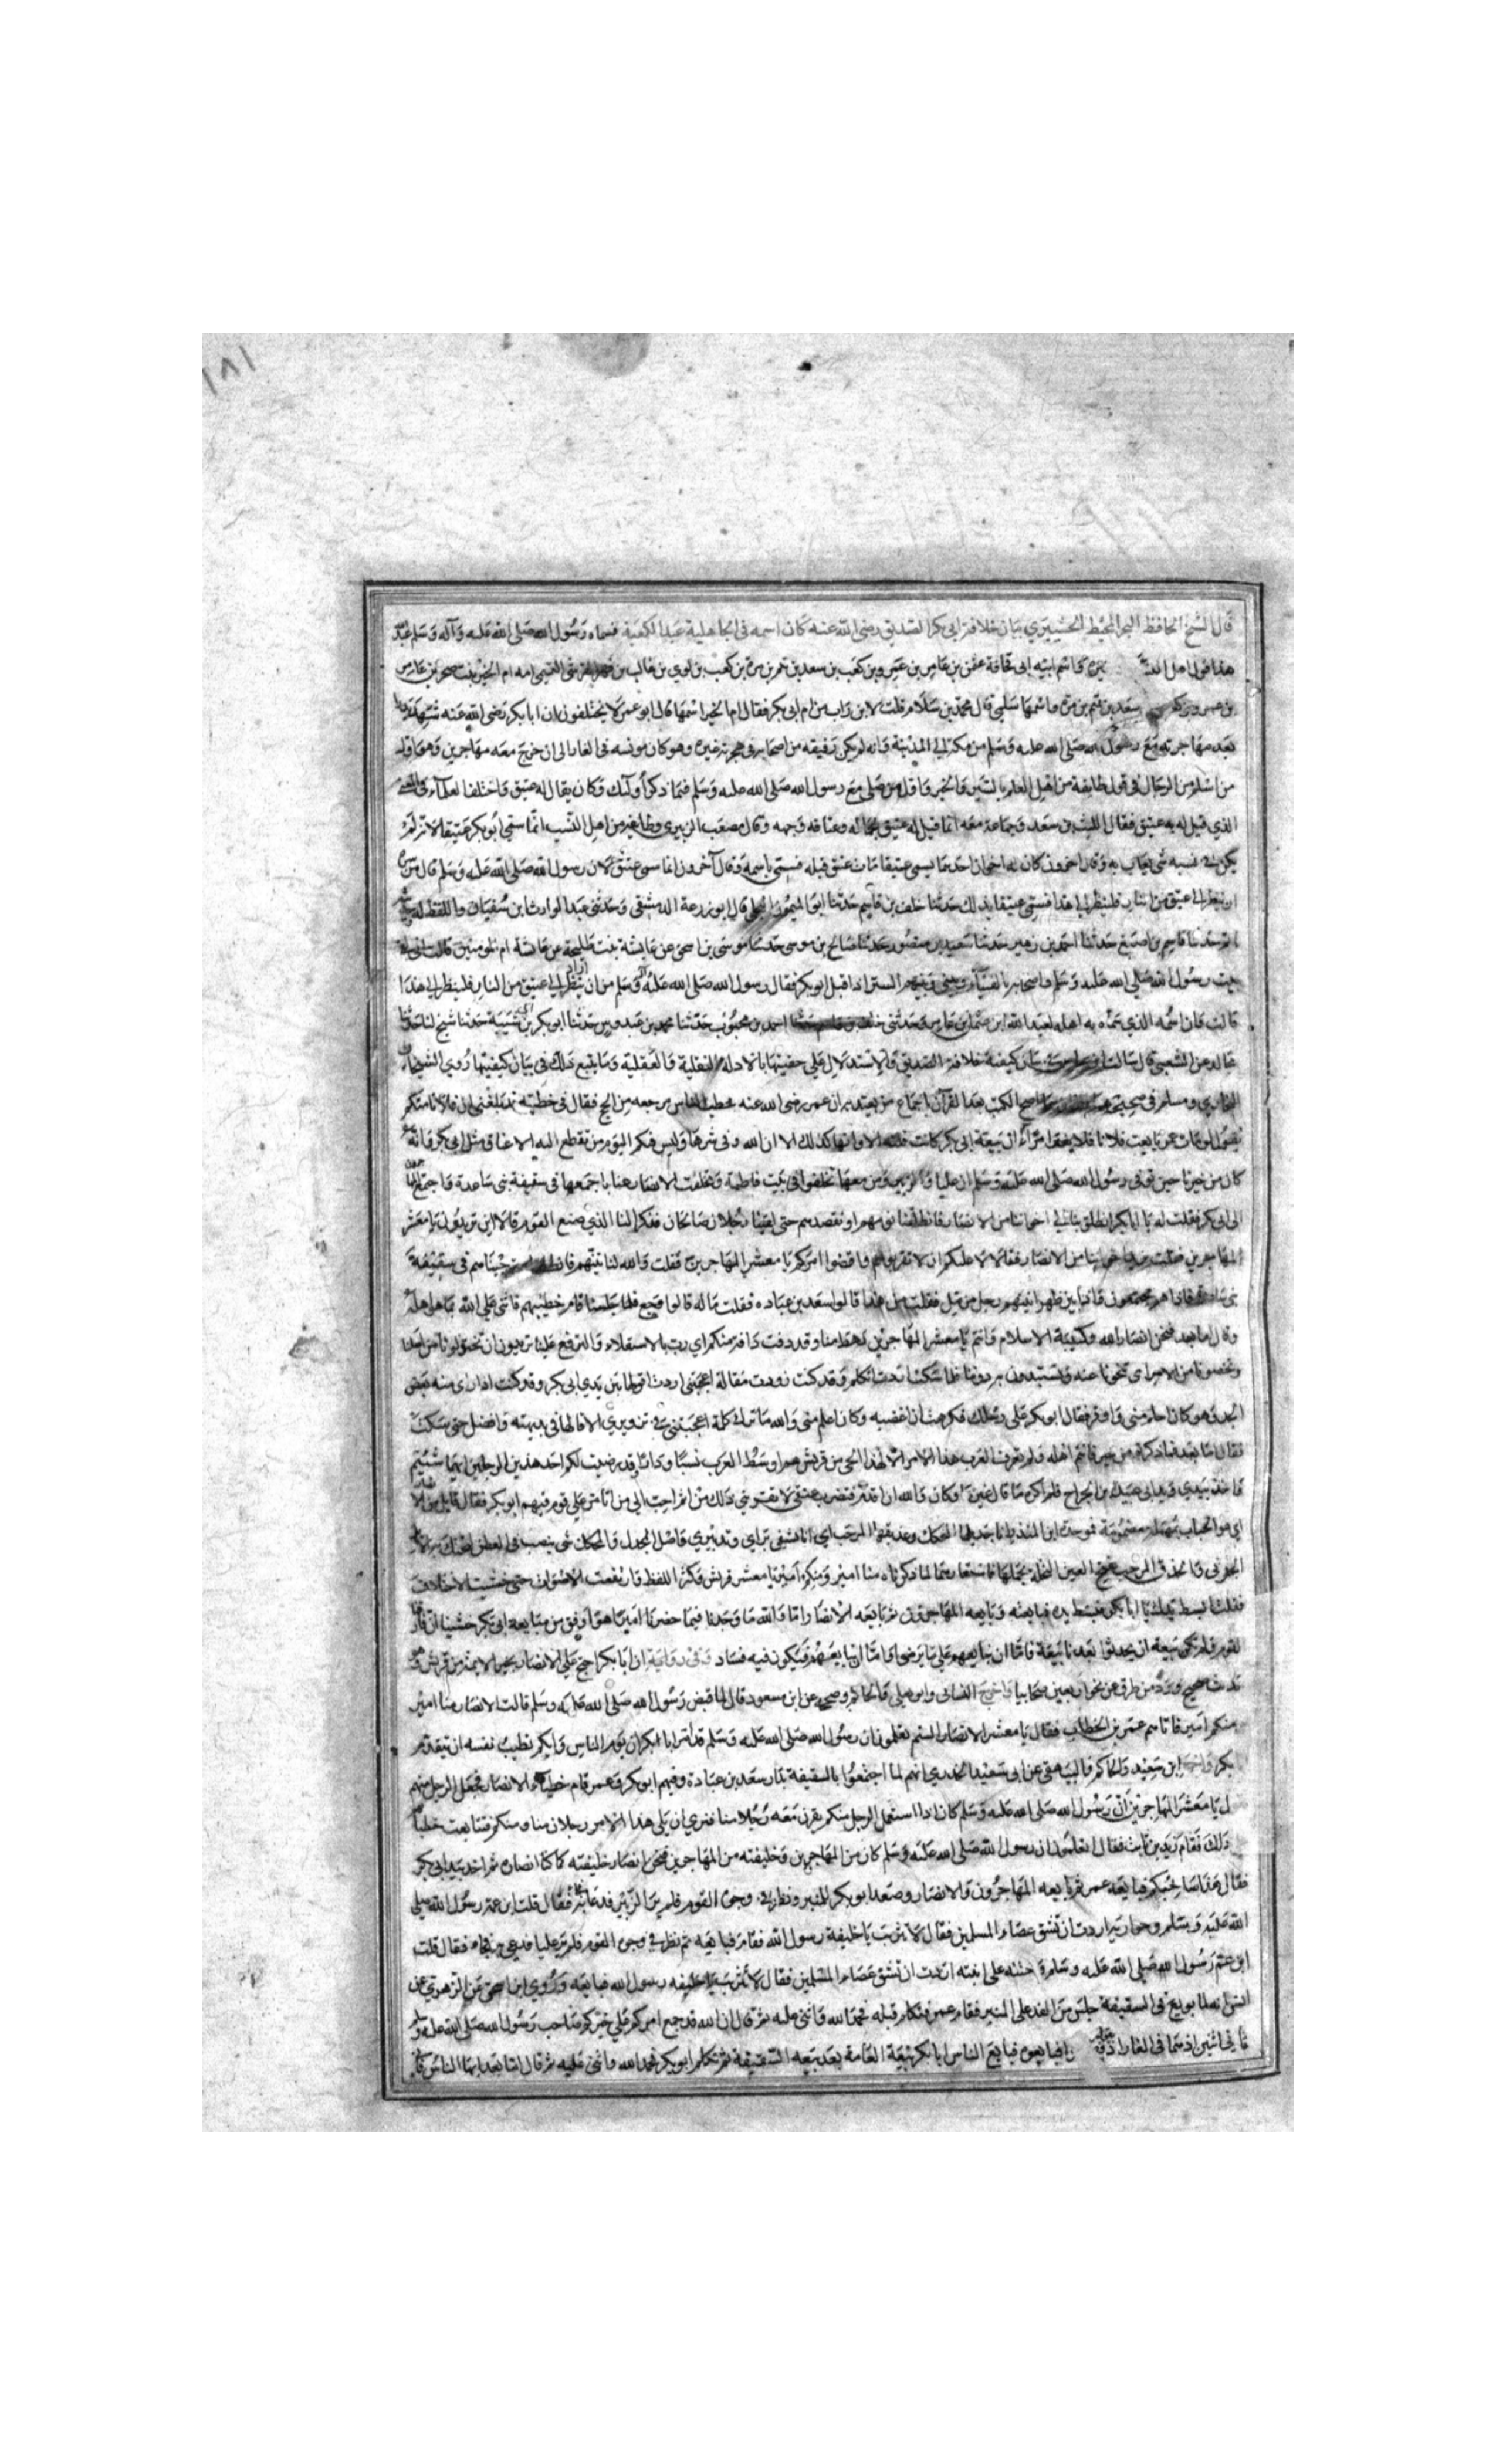 ١٨١
قال الشيخ الحافظ البحر المحيط بيان خلافة ابي بكر الصديق رضى الله عنه كان اسمه فى الجاهلية عبد الكعبة فسماه رسول الله صلى الله عليه وآله وسلم عبد
هذا قول اهل واسم ابيه ابى قحافة عثمن بن عامر بن عمرو بن كعب بن سعد بن تيم بن مرة بن كعب بن لوي بن غالب بن فهر القرشى التيمى امه ام الخير بنت صخر بن عامر
سعد بن تيم بن مرة واسمها سلمى قال محمد بن سلام قلت لابن داب من ام ابى بكر فقال ام الخير اسمها قال ابو عمر لا يختلفون ان ابا بكر رضى الله عنه شهد بدرا
بعد مهاجرته مع رسول الله صلى الله عليه وسلم من مكة الى المدينة وانه لم يكن رفيقه من اصحابه فى هجرته غيره وهو كان مونسه فى الغار الى ان خرج معه مهاجرين وهو اول
من اسلم من الرجال فى قول طايفة من اهل العلم بالسير والخبر واول من صلى مع رسول الله صلى الله عليه وسلم فيما ذكر أولئك وكان يقال له عتيق واختلف العلماء فى المعنى
الذي قيل له به عتيق فقال الليث بن سعد وجماعة معه انما قيل له عتيق لجماله وعتاقة وجهه وقال مصعب الزبيري وطايفة من اهل النسب انما سمي ابو بكر عتيقا لانه لم
يكن فى نسبه شئ يعاب به وقال اخرون كان له اخوان احدهما يسمى عتيقا مات عتيق قبله فسمى باسمه وقال آخرون انما سمى عتيق لان رسول الله صلى الله عليه وسلم قال من سره
ان ينظر الى عتيق من النار فلينظر الى هذا فسمى عتيقا بذلك حدثنا خلف بن قاسم حدثنا ابو الميمون البجلي قال ابو زرعة الدمشقى وحدثنى عبد الوارث بن سفيان واللفظ
حدثنا قاسم بن اصبغ حدثنا احمد بن زهير حدثنا سعيد بن منصور حدثنا صالح بن موسى حدثنا موسى بن اسحق عن عايشة بنت طلحة عن عايشة ام المومنين قالت انى
بيت رسول الله صلى الله عليه وسلم واصحابه بالفنآء وبينى وبينهم الستر اذ اقبل ابو بكر فقال رسول الله صلى الله عليه وسلم من اراد ان ينظر الى عتيق من النار فلينظر الى هذا
قالت فان اسمه الذي سماه به اهله لعبد الله بن عثمان بن عامر وحدثنى خلف بن قاسم حدثنا احمد بن محبوب حدثنا محمد بن عبدوس حدثنا ابو بكر بن شيبة حدثنا شيخ لنا حدثنا
مجالد عن الشعبى قال سالت بيان كيفية خلافة الصديق والاستدلال على حقيتها بالادلة النقلية والعقلية وما يتبع ذلك فى بيان كيفيتها روي الشيخان
البخاري ومسلم فى صحيحيهما اصح الكتب بعد القرآن باجماع من يعتد به ان عمر رضى الله عنه خطب الناس مرجعه من الحج فقال فى خطبته قد بلغنى ان فلانا منكم
يقول لو مات عمر بايعت فلانا فلا يغترن امرأ ان بيعة ابى بكر كانت فلتة الا وانها كذلك الا ان الله وقى شرها وليس فيكم اليوم من تقطع اليه الاعناق مثل ابى بكر وانه
كان من خيرنا حين توفى رسول الله صلى الله عليه وسلم ان عليا والزبير ومن معهما تخلفوا فى بيت فاطمة وتخلفت الانصار عنا باجمعها فى سقيفة بنى ساعدة واجتمع
الى ابى بكر فقلت له يا ابا بكر انطلق بنا الى اخواننا من الانصار فانطلقنا نومهم او نقصدهم حتى لقينا رجلان صالحان فذكرا لنا الذي صنع القوم قالا اين تريدون يا معشر
المهاجرين فقلت نريد اخواننا من الانصار فقالا لا عليكم ان لا تقربوهم واقضوا امركم يا معشر المهاجرين فقلت والله لناتينهم فانطلقنا حتى جئناهم فى سقيفة
بنى ساعدة فاذا هم مجتمعون فاذا بين ظهرانيهم رجل مزمل فقلت من هذا قالوا سعد بن عباده فقلت ما له قالوا وجع فلما جلسنا قام خطيبهم فاثنى على الله بما هو اهله
وقال اما بعد فنحن انصار الله وكتيبة الاسلام وانتم يا معشر المهاجرين رهط منا وقد دفت دافة منكم اي دب بالاستعلاء والترفع علينا تريدون ان تختزلونا من اصلنا
وتحضنونا من الامر اي تنحونا عنه وتستبدون به دوننا فلما سكت اردت ان اتكلم وقد كنت زورت مقالة اعجبتنى اردت ان اقولها بين يدي ابى بكر وقد كنت اداري منه بعض
الحد وهو كان احلم منى واوقر فقال ابو بكر على رسلك فكرهت ان اغضبه وكان اعلم منى والله ما ترك كلمة اعجبتنى فى تزويري الا قالها فى بديهته وافضل حتى سكت
فقال اما بعد فما ذكرتم من خير فانتم اهله ولم تعرف العرب هذا الامر الا لهذا الحى من قريش هم اوسط العرب نسبا ودارا وقد رضيت لكم احد هذين الرجلين ايهما شئتم
واخذ بيدي وبيد ابى عبيدة بن الجراح فلم اكره مما قال غيرها وكان والله ان اقدم فتضرب عنقى لا يقربني ذلك من اثم احب الي من ان اتامر على قوم فيهم ابو بكر فقال قايل من الانصار
اي هو الحباب بمهملة مضمومة فموحدة ابن المنذر انا جذيلها المحكك وعذيقها المرجب اي انا يشفى براي وتدبيري واصل الجذل والمحكك
منا امير ومنكم امير يا معشر قريش فكثر اللغط وارتفعت الاصوات حتى خشيت الاختلاف
فقلت ابسط يدك يا ابا بكر فبسط يده فبايعته وبايعه المهاجرون ثم بايعه الانصار اما والله ما وجدنا فيما حضرنا امرا هو اوفق من مبايعة ابى بكر خشينا ان فارقنا
القوم ولم تكن بيعة ان يحدثوا بعدنا بيعة فاما ان نبايعهم على ما لا نرضى واما ان نخالفهم فيكون فيه فساد وفى رواية ان ابا بكر احتج على الانصار بخبر الايمة من قريش
حديث صحيح ورد من طرق عن نحو اربعين صحابيا واخرج النسائى وابو يعلى والحاكم وصححه عن ابن مسعود قال لما قبض رسول الله صلى الله عليه وسلم قالت الانصار منا امير
ومنكم امير فاتاهم عمر بن الخطاب فقال يا معشر الانصار الستم تعلمون ان رسول الله صلى الله عليه وسلم قد امر ابا بكر ان يوم الناس وايكم تطيب نفسه ان يتقدم
بكر واخرج ابن سعد والحاكم والبيهقى عن ابى سعيد الخدري انهم لما اجتمعوا بالسقيفة بدار سعد بن عبادة وفيهم ابو بكر وعمر قام خطباء الانصار فجعل الرجل منهم
يا معشر المهاجرين ان رسول الله صلى الله عليه وسلم كان اذا استعمل الرجل منكم يقرن معه رجلا منا فنري ان يلى هذا الامر رجلان منا ومنكم فتتابعت خطباؤهم
ذلك فقام زيد بن ثابت فقال اتعلمون ان رسول الله صلى الله عليه وسلم كان من المهاجرين وخليفته من المهاجرين فنحن انصار خليفته كما كنا انصاره ثم اخذ بيد ابى بكر
فقال هذا صاحبكم فبايعه عمر ثم بايعه المهاجرون والانصار وصعد ابو بكر المنبر ونظر فى وجوه القوم فلم ير الزبير فدعا به فجاء فقال قلت ابن عمة رسول الله صلى
الله عليه وسلم وحواريه اردت ان تشق عصاء المسلمين فقال لا تثريب يا خليفة رسول الله فقام فبايعه ثم نظر فى وجوه القوم فلم ير عليا فدعى به فجاء فقال قلت
ابن عم رسول الله صلى الله عليه وسلم وختنه على ابنته اردت ان تشق عصاء المسلمين فقال لا تثريب يا خليفه رسول الله فبايعه وروى ابن اسحق عن الزهري عن
انس انه لما بويع فى السقيفة جلس من الغد على المنبر فقام عمر فتكلم قبله فحمد الله واثنى عليه ثم قال ان الله قد جمع امركم على خيركم صاحب رسول الله صلى الله عليه و
ثانى اثنين اذ هما فى الغار فبايعوه فبايع الناس ابا بكر بيعة العامة بعد بيعه السقيفة ثم تكلم ابو بكر فحمد الله واثنى عليه ثم قال اما بعد ايها الناس